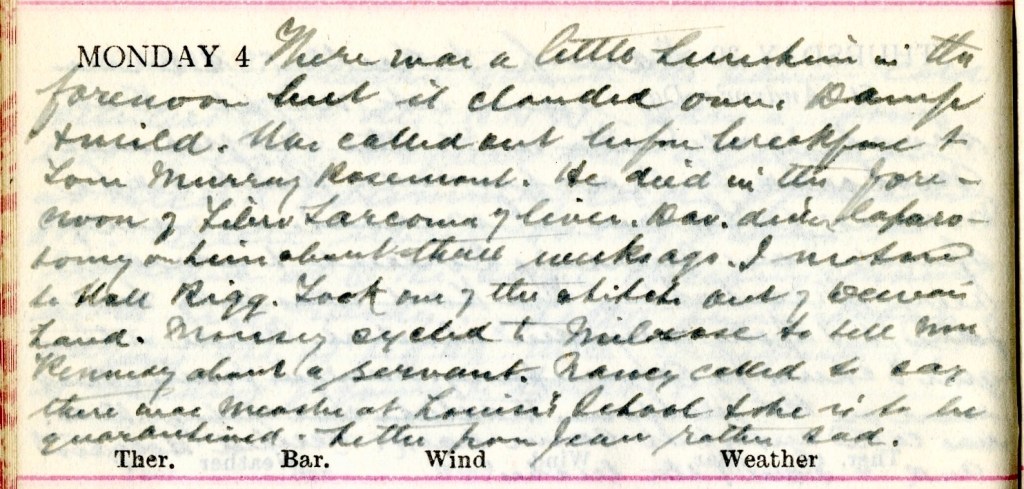 MONDAY 4 There was a little Sunshine in the
forenoon but it clouded over. Damp
& mild. Was called out before breakfast to
Tom Murray Rosemount. He died in the fore-
noon of Fibro Sarcoma of liver. Dav. did laparo-
tomy on him about three weeks ago. I motored
to Hall Rigg. Took one of the stitches out of
hand. cycled to Melrose to tell
Kennedy about a servant. Nancy called to say
there was Measles at Louise's School & she is to be
quarantined. Letter from Jean rather sad.
Ther. Bar. Wind Weather